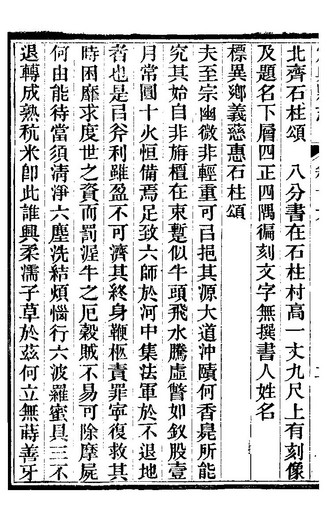 北齊石柱頌　八分書在石柱村高一丈九尺上有刻像
及題名下層四正四隅徧刻文字無撰書人姓名
標異鄉義慈惠石柱頌
夫至宗幽微非輕重可㠯挹其源大道沖賾何香㲋所能
究其始自非旃檀在束蹔似牛頭飛水騰虛瞥如釵股壹
月常圓十火恒備焉足致六師於河中集法軍於不退地
者也是㠯斧利雖盈不可濟其終身鞭柩責罪寧復救其
時困靡求度世之資而罰涅牛之厄穀賊不易可除摩屍
何由能待當須清淨六塵洗結煩惱行六波羅蜜具三不
退轉成熟秔米卽此誰興柔濡子草於茲何立無蒔善牙